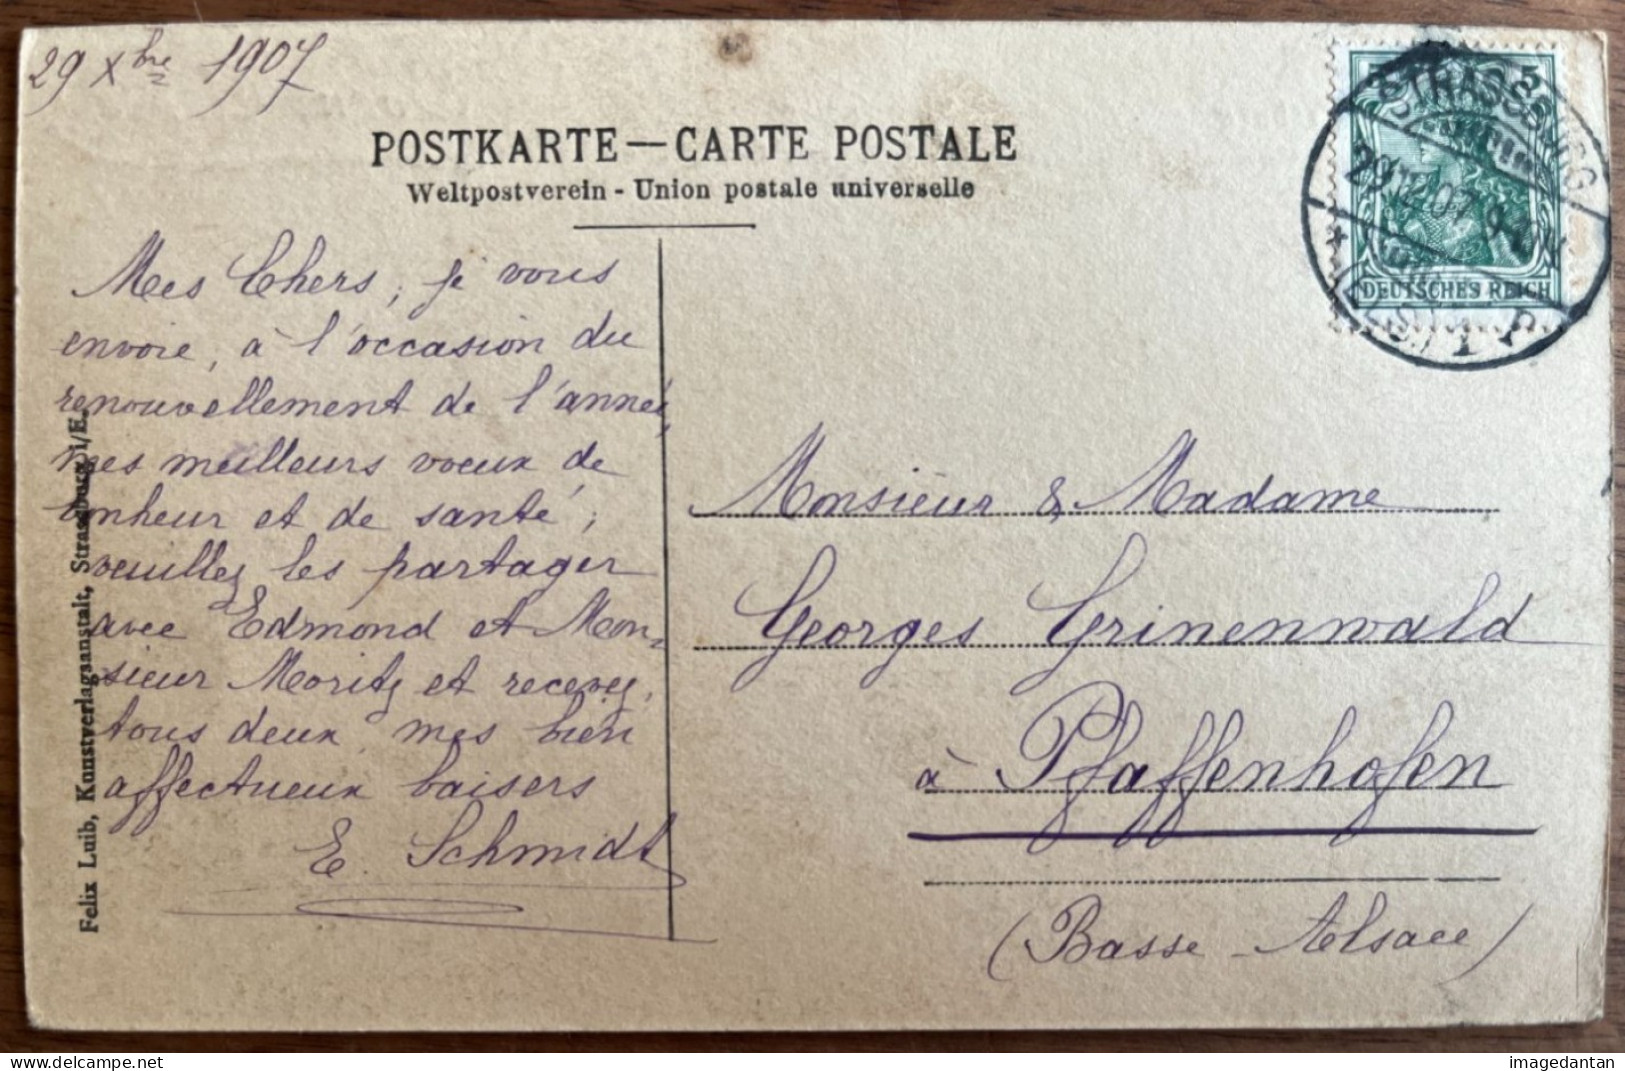 29 Xbre 1907
POSTKARTE — CARTE POSTALE
Weltpostverein - Union postale universelle
5 5
STRASSBURG
29.12.07. 9-10V
* (ELS.) 1 P
DEUTSCHES REICH
Mes Chers, je vous
envoie, à l'occasion du
renouvellement de l'année,
mes meilleurs voeux de
bonheur et de santé;
veuillez les partager
avec Edmond et Mon-
sieur Moritz et recevez,
tous deux, mes bien
affectueux baisers
E. Schmidt
Monsieur & Madame
Georges Grinenwald
à Pfaffenhofen
(Basse-Alsace)
Felix Luib, Kunstverlagsanstalt, Strassburg i/E.
delcampe.net
imagedantan